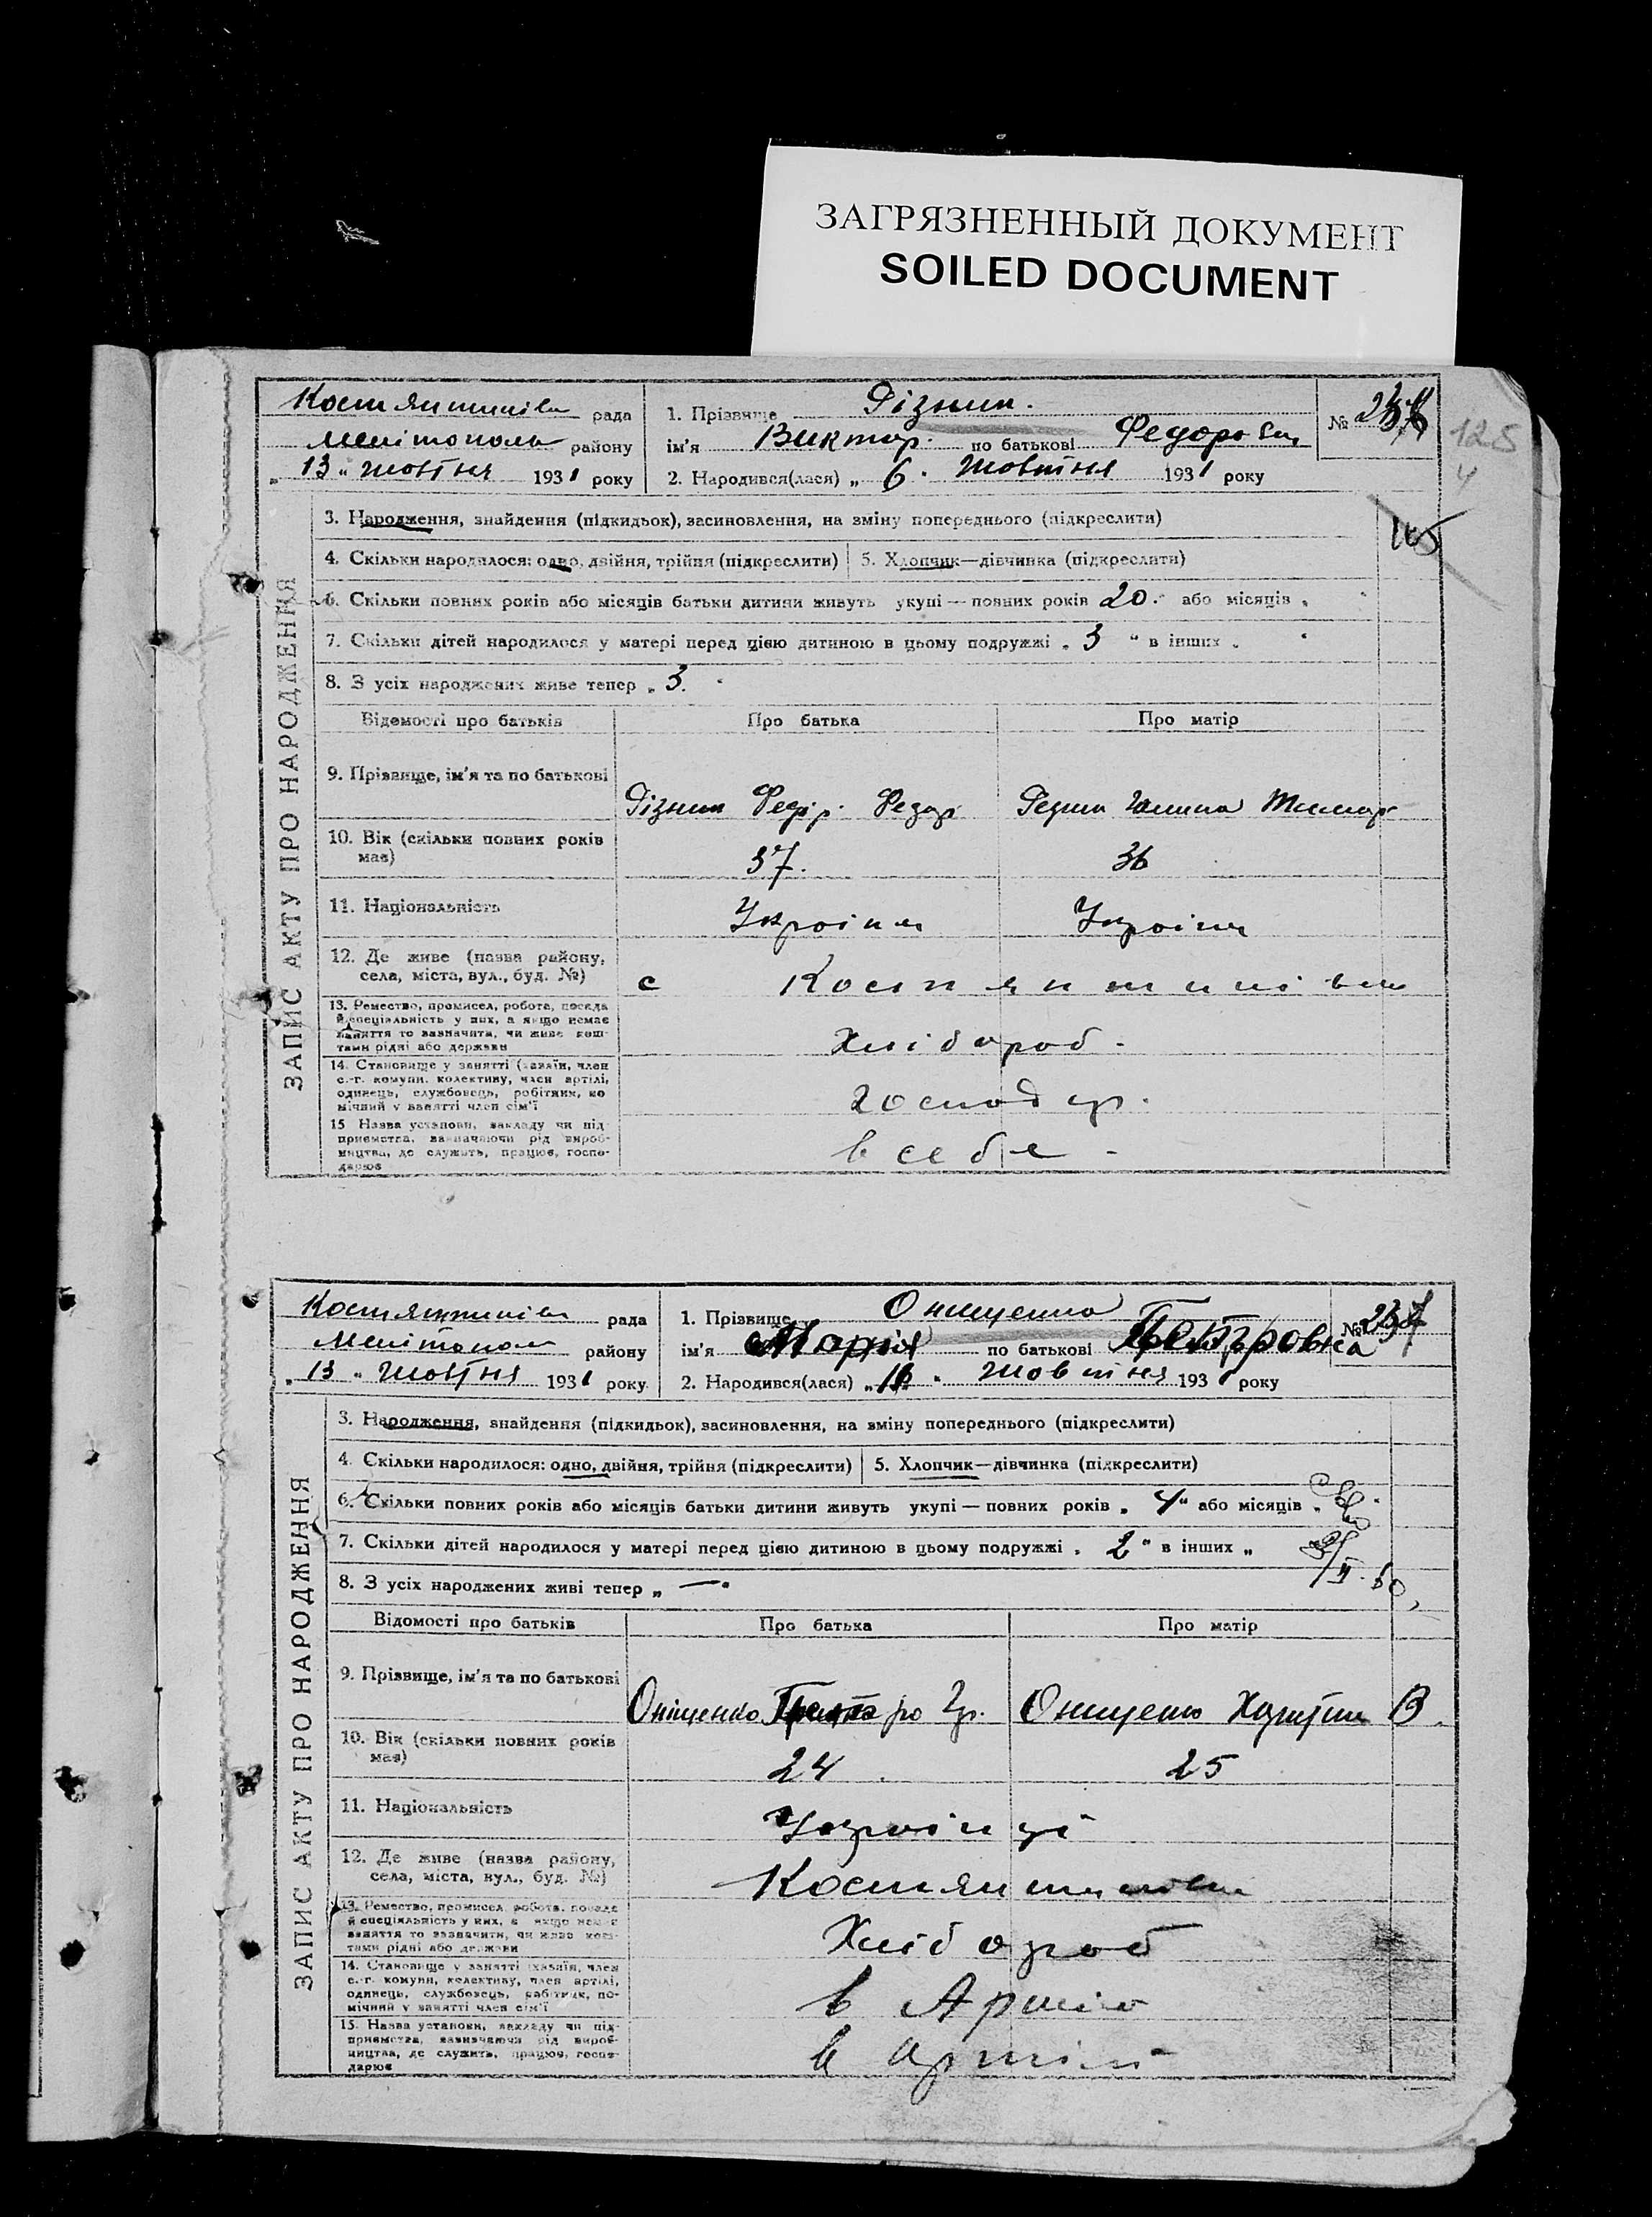 ЗАГРЯЗНЕННЫЙ ДОКУМЕНТ
SOILED DOCUMENT
ЗАПИС АКТУ ПРО НАРОДЖЕННЯ
Костянтинів рада
Мелітополь району
"13" жовтня 1931 року
1. Прізвище Різник.
ім'я Виктор. по батькові Федоров
2. Народився(лася) "6" жовтня 1931 року
№
125
4
3. Народження, знайдення (підкидьок), засиновлення, на зміну попереднього (підкреслити)
4. Скільки народилося: одно, двійня, трійня (підкреслити) 5. Хлопчик—дівчинка (підкреслити)
6. Скільки повних років або місяців батьки дитини живуть укупі — повних років 20 або місяців
7. Скільки дітей народилося у матері перед цією дитиною в цьому подружжі „ 3 " в інших „
8. З усіх народжених живе тепер „ 3.
Відомості про батьків Про батька Про матір
9. Прізвище, ім'я та по батькові Різник Федір Федор
10. Вік (скільки повних років має) 37. 36
11. Національність Україн Україн
12. Де живе (назва району, села, міста, вул., буд. №) с Костянтинівка
13. Ремество, промисел, робота, посада й спеціальність у них, а якщо немає заняття то зазначити, чи живе коштами рідні або держави Хлібороб.
14. Становище у занятті (хазяїн, член с.-г. комуни, колективу, член артілі, одинець, службовець, робітник, помічний у занятті член сім'ї Господар.
15 Назва установи, закладу чи підприємства, зазначаючи рід виробництва, де служить, працює, господарює в себе
ЗАПИС АКТУ ПРО НАРОДЖЕННЯ
Костянтинів рада
Мелітопол району
„13" жовтня 1931 року
1. Прізвище Онищенко
ім'я Марія по батькові Петровна
2. Народився(лася) жовтня 1931 року
№ 237
3. Народження, знайдення (підкидьок), засиновлення, на зміну попереднього (підкреслити)
4. Скільки народилося: одно, двійня, трійня (підкреслити) 5. Хлопчик—дівчинка (підкреслити)
6. Скільки повних років або місяців батьки дитини живуть укупі — повних років „ 4 " або місяців „
7. Скільки дітей народилося у матері перед цією дитиною в цьому подружжі „ 2 " в інших „
8. З усіх народжених живі тепер „ —
Відомості про батьків Про батька Про матір
9. Прізвище, ім'я та по батькові Оніщенко Петро Гр. Онищенко В.
10. Вік (скільки повних років має) 24 25
11. Національність Українці
12. Де живе (назва району, села, міста, вул., буд. №) Костянтинівка
13. Ремество, промисел, робота, посада й спеціяльність у них, а якщо немає заняття то зазначити, чи живе коштами рідні або держави Хлібороб
14. Становище у занятті (хазяїн, член с.-г. комуни, колективу, член артілі, одинець, службовець, робітник, помічний у занятті член сім'ї в Артілі
15. Назва установи, закладу чи підприємства, зазначаючи рід виробництва, де служить, працює, господарює в артілі